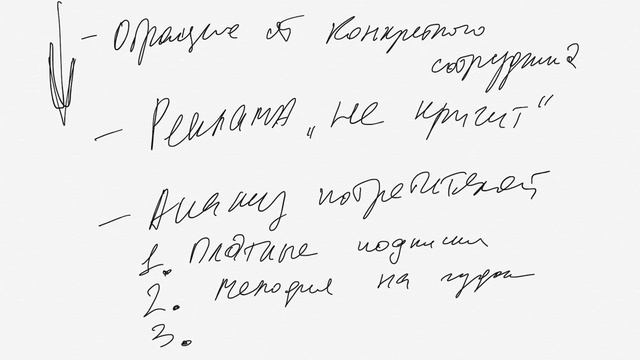 - Обращение от конкретного
сотрудника
- Реклама „не кричит"
- Анализ потребителей
1. Платные подписки
2. Мелодия на гудок
3.